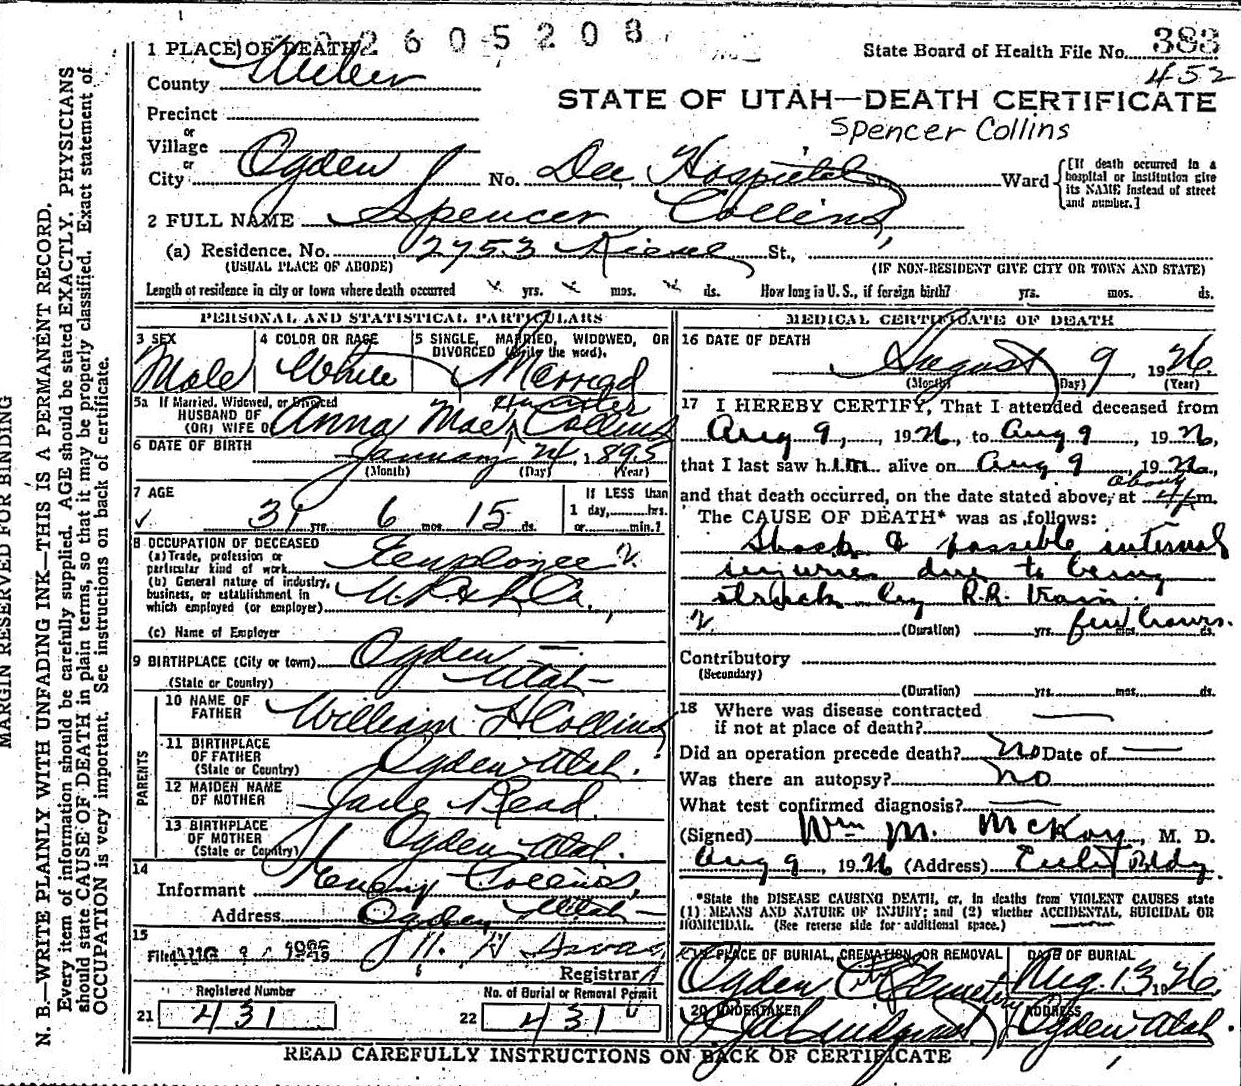 2605208
State Board of Health File No. 383
452
1 PLACE OF DEATH
County Weber
STATE OF UTAH—DEATH CERTIFICATE
Spencer Collins
Precinct
or
Village
or
City Ogden No. Dee Hospital St., Ward
[If death occurred in a hospital or institution give its NAME instead of street and number.]
2 FULL NAME Spencer Collins,
(a) Residence. No. 2753 Kiesel St.,
(USUAL PLACE OF ABODE) (IF NON-RESIDENT GIVE CITY OR TOWN AND STATE)
Length of residence in city or town where death occurred yrs. mos. ds. How long in U. S., if foreign birth? yrs. mos. ds.
PERSONAL AND STATISTICAL PARTICULARS
3 SEX
Male
4 COLOR OR RACE
White
5 SINGLE, MARRIED, WIDOWED, OR DIVORCED (Write the word).
Married
5a If Married, Widowed, or Divorced
HUSBAND OF
(OR) WIFE OF Anna Mae Collins
6 DATE OF BIRTH January 24, 1895
(Month) (Day) (Year)
7 AGE
31 yrs. 6 mos. 15 ds.
If LESS than
1 day, hrs.
or min.?
8 OCCUPATION OF DECEASED
(a) Trade, profession or
particular kind of work Employee
(b) General nature of industry,
business, or establishment in
which employed (or employer)
(c) Name of Employer
9 BIRTHPLACE (City or town) Ogden
(State or Country) Utah
PARENTS
10 NAME OF
FATHER William H Collins
11 BIRTHPLACE
OF FATHER
(State or Country) Ogden Utah.
12 MAIDEN NAME
OF MOTHER Jane Read
13 BIRTHPLACE
OF MOTHER
(State or Country) Ogden Utah.
14
Informant Collins,
Address Ogden, Utah
15
Filed AUG 9
Registrar
Registered Number
21 431
No. of Burial or Removal Permit
22 431
MEDICAL CERTIFICATE OF DEATH
16 DATE OF DEATH
August 9, 1926.
(Month) (Day) (Year)
17 I HEREBY CERTIFY, That I attended deceased from
Aug 9, 1926, to Aug 9, 1926,
that I last saw him alive on Aug 9, 1926,
about
and that death occurred, on the date stated above, at m.
The CAUSE OF DEATH* was as follows:
Shock & possible internal
injuries due to being
struck by R.R. train.
(Duration) yrs. mos. ds. few hours.
Contributory
(Secondary)
(Duration) yrs. mos. ds.
18 Where was disease contracted
if not at place of death?
Did an operation precede death? no Date of
Was there an autopsy? no
What test confirmed diagnosis?
(Signed) Wm M. McKay, M. D.
Aug 9, 1926 (Address) Eccles Bldg.
*State the DISEASE CAUSING DEATH, or, in deaths from VIOLENT CAUSES state
(1) MEANS AND NATURE OF INJURY; and (2) whether ACCIDENTAL, SUICIDAL OR
HOMICIDAL. (See reverse side for additional space.)
PLACE OF BURIAL, CREMATION, OR REMOVAL
Ogden City Cemetery
DATE OF BURIAL
Aug. 13, 1926.
20 UNDERTAKER
Lindquist
ADDRESS
Ogden Utah.
READ CAREFULLY INSTRUCTIONS ON BACK OF CERTIFICATE
MARGIN RESERVED FOR BINDING
N. B.—WRITE PLAINLY WITH UNFADING INK—THIS IS A PERMANENT RECORD.
Every item of information should be carefully supplied. AGE should be stated EXACTLY. PHYSICIANS
should state CAUSE OF DEATH in plain terms, so that it may be properly classified. Exact statement of
OCCUPATION is very important. See instructions on back of certificate.